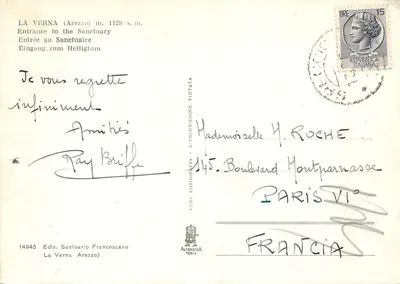 LA VERNA (Arezzo) m. 1128 s. m.
Entrance to the Sanctuary
Entrée au Sanctuaire
Eingang zum Heiligtum
Je vous regrette
infiniment
Amitiés
Ray Briffe
14945 Ediz. Santuario Francescano
La Verna Arezzo)
VERA FOTOGRAFIA - RIPRODUZIONE VIETATA
ALTEROCCA
TERNI
LIRE 15
REPUBBLICA
ITALIANA
Mademoiselle M. ROCHE
145. Boulevard Montparnasse
PARIS VI°
FRANCIA